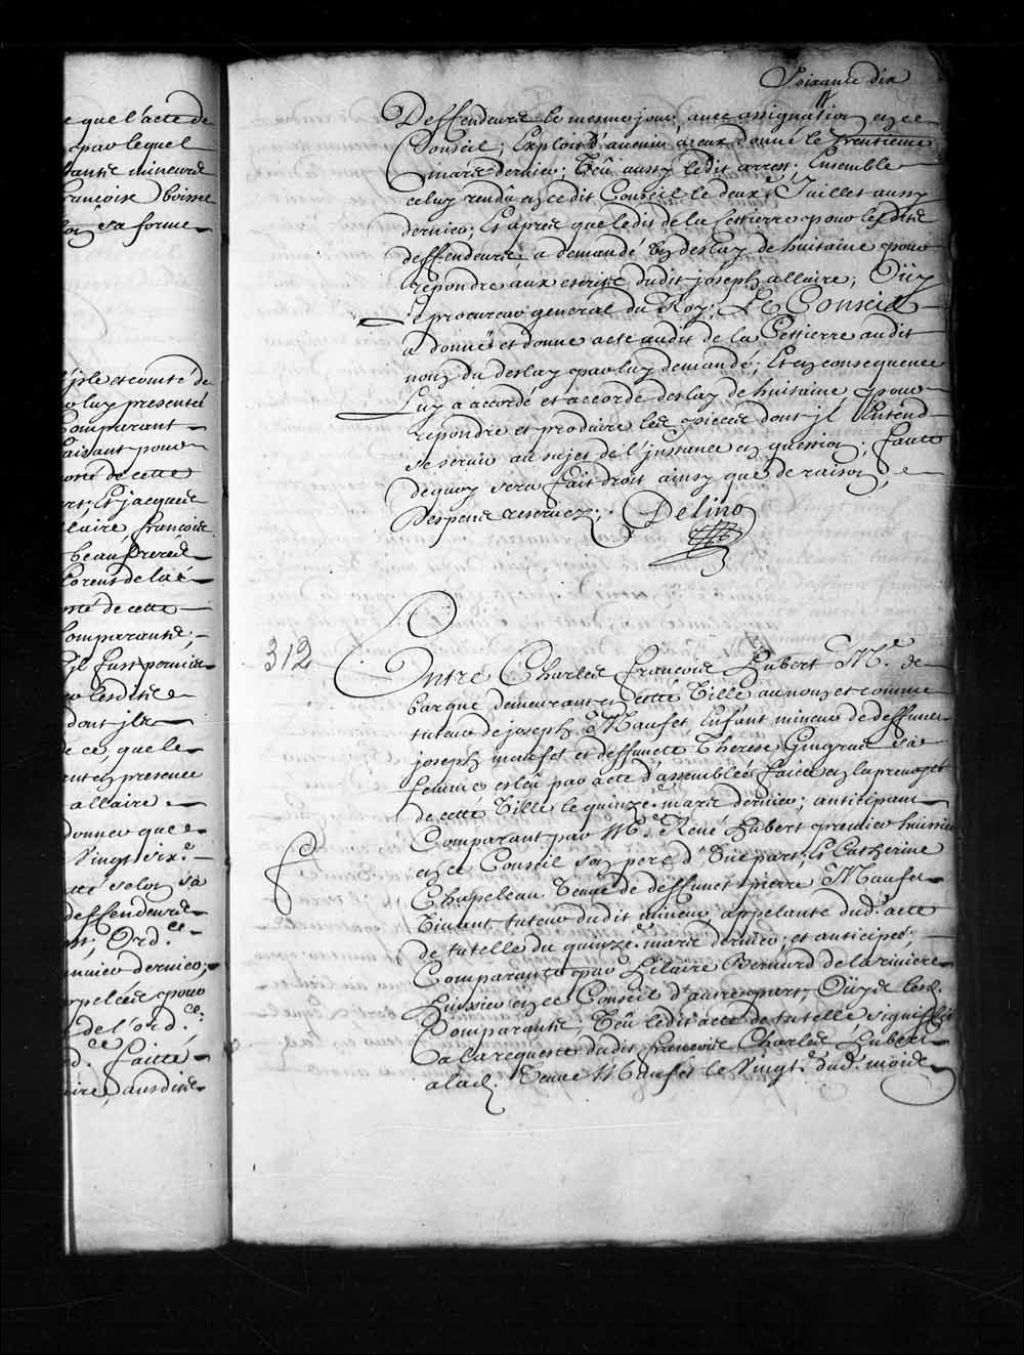 e que l'acte de
par lequel
francoise boisme
sa forme
et comté de
luy presenté
Comparant
faisant pour
de cette
Et jacques
claire francois
beaufreres
de cette
Comparants;
fust permis
lesdits
dont ils
ce que le
en presence
allaire
donner que
Vingt six.e
selon sa
deffendeurs
Ord.ce
dernier;
appelées pour
de l'ord.ce
faitte
ausdits
Soixante dix
Deffendeurs le mesme jour, avec assignation en ce
Conseil; Exploit d'aucun a eux donné le trentieme
mars dernier; Veu aussy ledit arrest; Ensemble
celuy rendu en cedit Conseil le deux.e Juillet aussy
dernier; Et apres que ledit de la Cettierre pour lesdits
deffendeurs, a demandé un deslay de huitaine pour
repondre aux escrits dudit joseph allaire; Oüy
le procureur general du Roy; Le Conseil
a donné et donne acte audit de la Cettierre audit
nom du deslay par luy demandé; Et en consequence
Luy a accordé et accorde deslay de huitaine pour
repondre et produire les pieces dont jl Entend
se servir au sujet de l'jnstance en question; faute
dequoy sera fait droit ainsy que de raison,
Despens reservez;. Delino
312
Entre Charles francois Hubert M.e de
barque demeurant en cette Ville au nom et comme
tuteur de joseph Maufet Enfant mineur de deffunct
joseph maufet et deffuncte Therese Gingras sa
femme esleu par acte d'assemblée faitte en la prevosté
de cette Ville le quinze.e mars dernier; anticipant
Comparant par M.e René Hubert premier huissier
en ce Conseil son pere d'Une part; Et Catherine
Chapeleau Veuve de deffunct pierre Maufet
Vivant tuteur dudit mineur, appelante dud. acte
de tutelle du quinze.e mars dernier; et anticipée;
Comparante par hilaire Bernard de la riviere
huissier en ce Conseil d'autre part; Oüyes lesd.
Comparants; Veu ledit acte de tutelle signiffié
a la requeste dudit francois Charles Hubert
a lad. Veuve Maufet le Vingt.e dud. mois